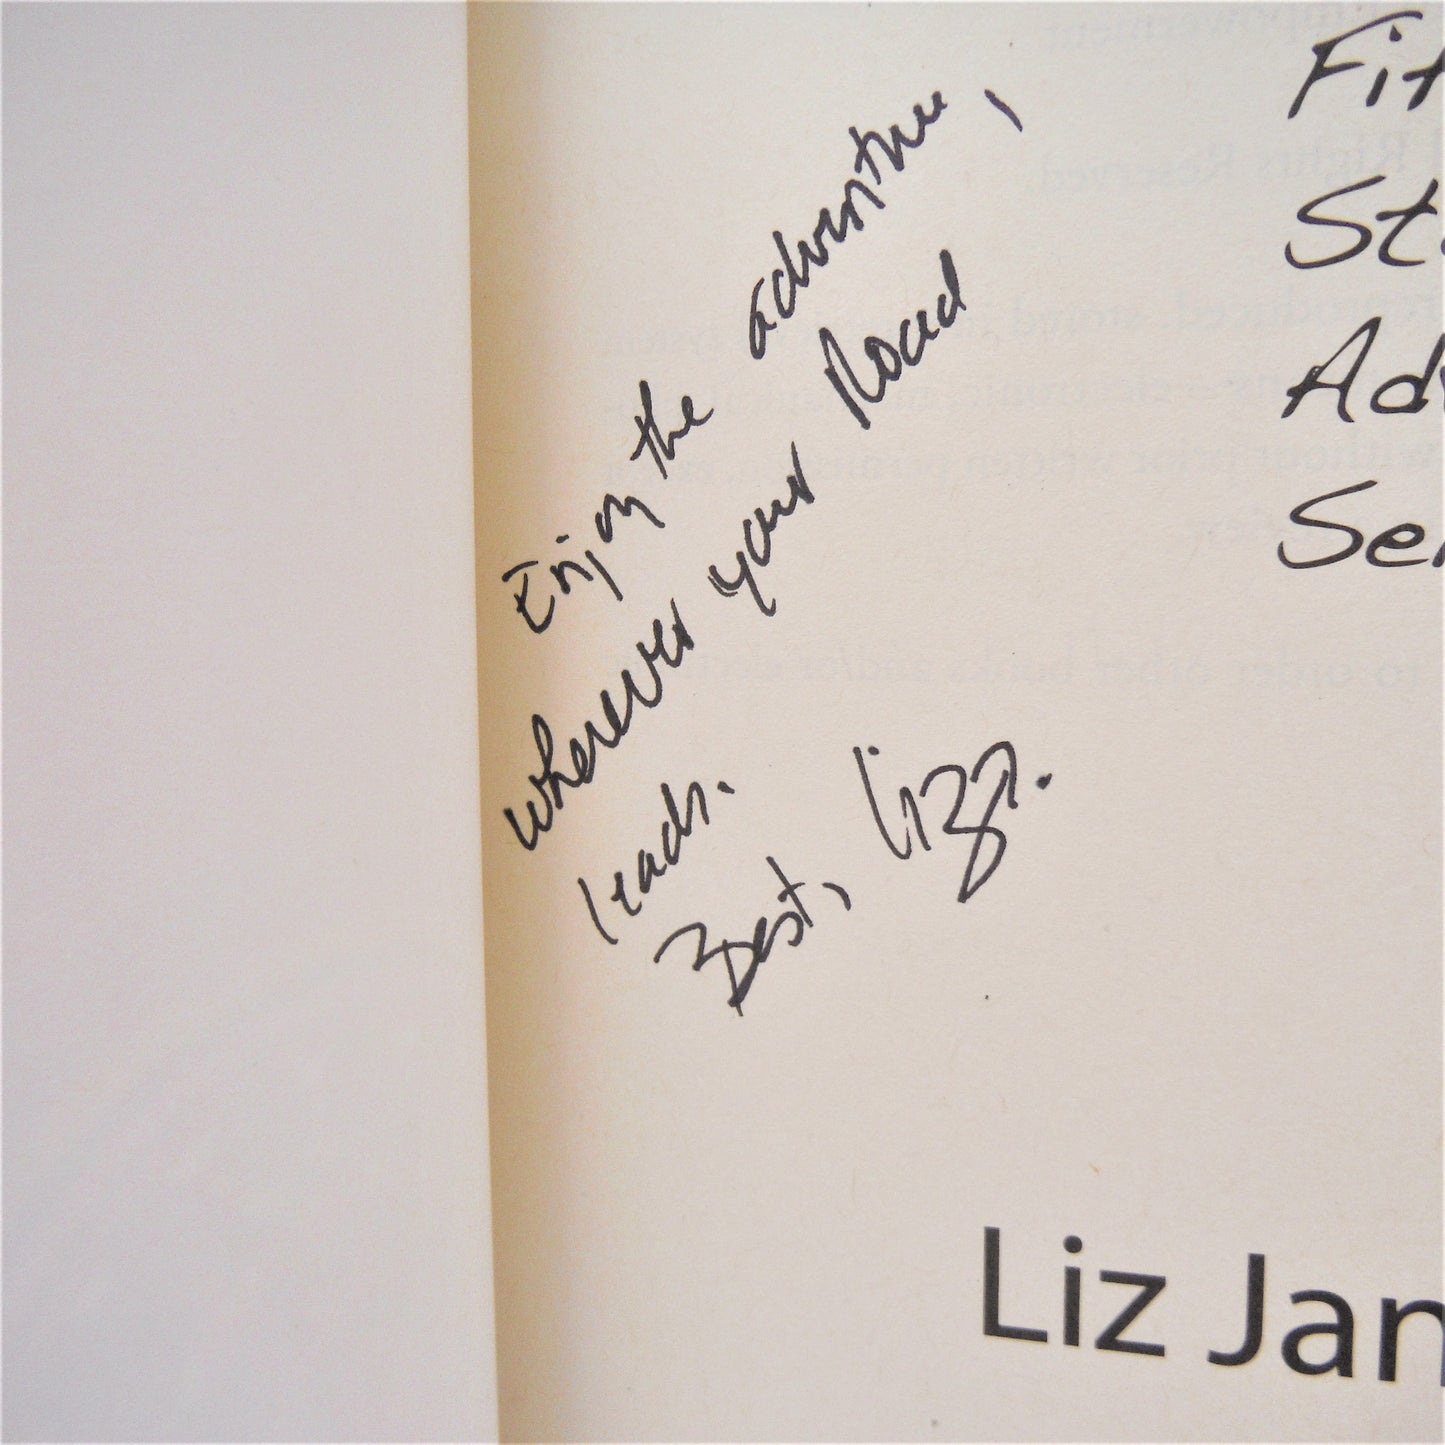 Enjoy the adventure,
wherever your Road
leads.
Best, Liz J.
Fit
St
Ad
Se
Liz Jan